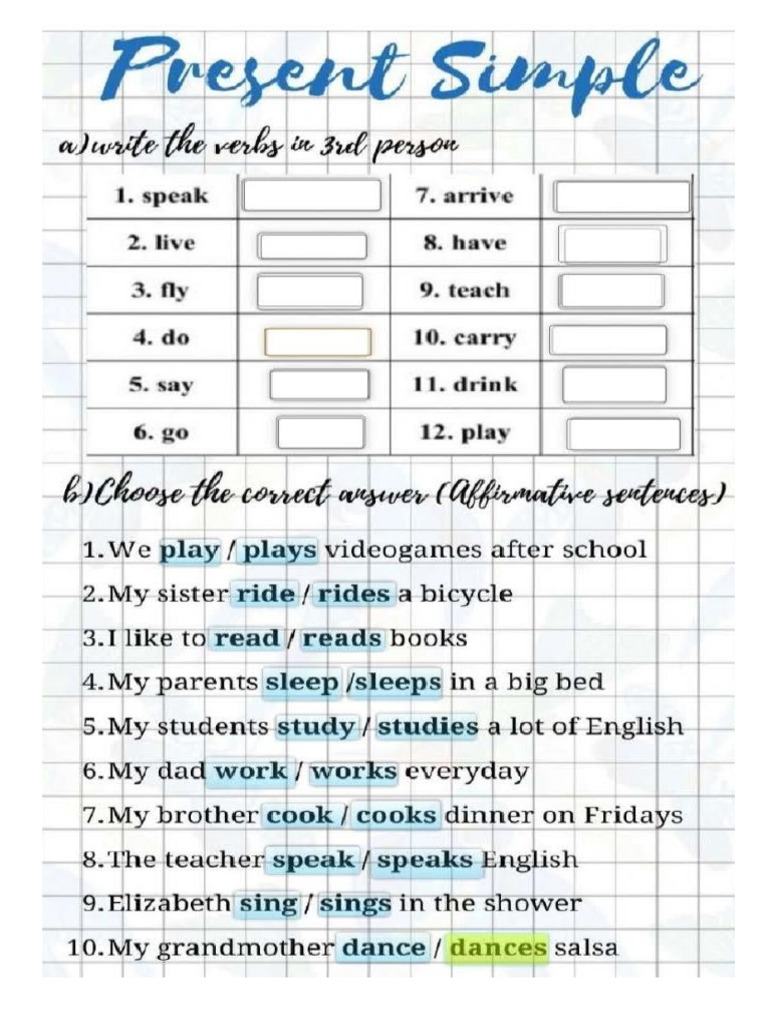 Present Simple
a)write the verbs in 3rd person
1. speak 7. arrive
2. live 8. have
3. fly 9. teach
4. do 10. carry
5. say 11. drink
6. go 12. play
b)Choose the correct answer (Affirmative sentences)
1.We play / plays videogames after school
2.My sister ride / rides a bicycle
3.I like to read / reads books
4.My parents sleep /sleeps in a big bed
5.My students study / studies a lot of English
6.My dad work / works everyday
7.My brother cook / cooks dinner on Fridays
8.The teacher speak / speaks English
9.Elizabeth sing / sings in the shower
10.My grandmother dance / dances salsa